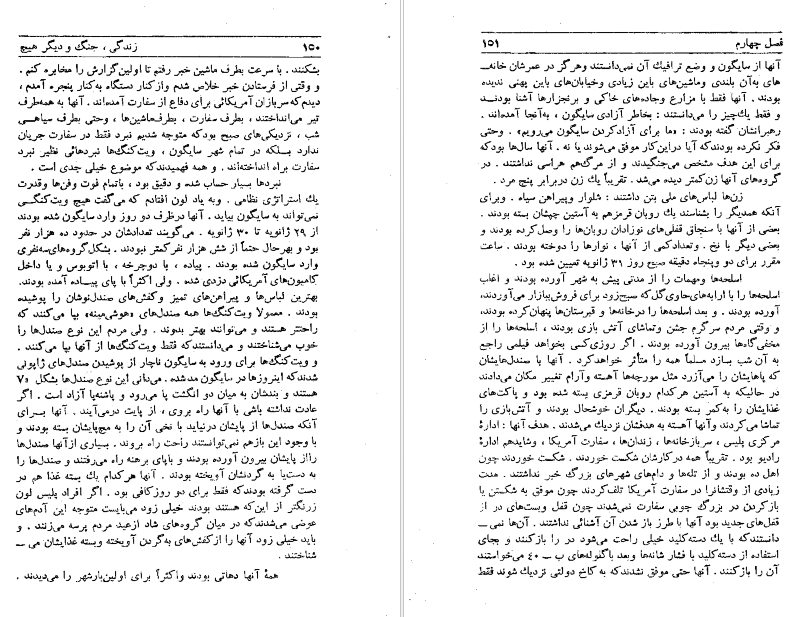 ۱۵۰ زندگی ، جنگ و دیگر هیچ
بشکنند . با سرعت بطرف ماشین خبر رفتم تا اولین‌گزارش را مخابره کنم .
و وقتی از فرستادن خبر خلاص شدم وازکنار دستگاه به‌کنار پنجره آمدم ،
دیدم‌که سربازان آمریکائی برای دفاع از سفارت آمده‌اند . آنها به‌همه‌طرف
تیر می‌انداختند ، بطرف سفارت ، بطرف‌ماشین‌ها ، وحتی بطرف سیاهی
شب ، نزدیکی‌های صبح بودکه متوجه شدیم نبرد فقط در سفارت جریان
ندارد بـلـکه در تمام شهر سایگون ، ویت‌کنگ‌ها نبردهائی نظیر نبرد
سفارت براه انداخته‌اند . و همه فهمیدندکه موضوع خیلی جدی است .
نبردها بسیار حساب شده و دقیق بود ، باتمام فوت وفن‌ها وقدرت
یك استراتژی نظامی . وبه یاد لون افتادم که می‌گفت هیچ ویت‌کنگـی
نمی‌تواند به سایگون بیاید . آنها درظرف دو روز وارد سایگون شده بودند
از ۲۹ ژانویه تا ۳۰ ژانویه . می‌گویند تعدادشان در حدود ده هزار نفر
بود و بهرحال حتماً از شش هزار نفرکمتر نبودند . بشکل‌گروه‌های‌سه‌نفری
وارد سایگون شده بودند . پیاده ، با دوچرخه ، با اتوبوس و یا داخل
کامیون‌های آمریکائی دزدی شده . ولی اکثراً با پای پیـاده آمده بودند.
بهترین لباس‌ها و پیراهن‌های تمیز وکفش‌های صندل‌نوشان را پوشیده
بودند . معمولا ویت‌کنگ‌ها همه صندل‌های «هوشی‌مینه» بپا می‌کنند که
راحتتر هستند و می‌توانند بهتر بدوند . ولی مردم این نوع صندل‌ها را
خوب می‌شناختند و می‌دانستندکه فقط ویت‌کنگ‌ها از آنها بپا می‌کنند .
و ویت‌کنگ‌ها برای ورود به سایگون ناچار از پوشیدن صندل‌های ژاپونی
شدندکه اینروزها در سایگون مدشده . می‌دانی این نوع صندل‌ها بشکل ۷»
هستند و بندشان به میان دو انگشت پا می‌رود و پاشنه‌پا آزاد است . اگر
عادت نداشته باشی با آنها راه بروی ، از پایت درمی‌آیند . آنها بـرای
آنکه صندل‌ها از پایشان درنیاید با نخی آن را به مچ‌پایشان بسته بودند و
با وجود این بازهم نمی‌توانستند راحت راه بروند . بسیاری ازآنها صندل‌ها
رااز پایشان بیرون آورده بودند و باپای برهنه راه می‌رفتند و صندل‌ها را
به دست‌یا به گردنشان آویخته بودند . آنها هرکدام یك بسته غذا هم در
دست گرفته بودندکه فقط برای دو روزکافی بود . اگر افراد پلیس لون
زرنگتر از این‌که هستند بودند خیلی زود می‌بایست متوجه این آدم‌های
عوضی می‌شدندکه در میان گروه‌های شاد ازعید مردم پرسه می‌زنند . و
باید خیلی زود آنها را ازکفش‌های به‌گردن آویخته وبسته غذایشان می ــ
شناختند .
همهٔ آنها دهاتی بودند واکثراً برای اولین‌بارشهر را می‌دیدند .
فصل چهارم ۱۵۱
آنها از سایگون و وضع ترافیك آن نمی‌دانستند وهرگز در عمرشان خانه‌ــ
های به‌آن بلندی وماشین‌های باین زیادی وخیابان‌های باین پهنی ندیده
بودند . آنها فقط با مزارع وجاده‌های خاکی و برنجزارها آشنا بودنـد
و فقط یك‌چیز را می‌دانستند : بخاطر آزادی سایگون ، به‌آنجا آمده‌اند .
رهبرانشان گفته بودند : «ما برای آزادکردن سایگون می‌رویم» . وحتی
فکر نکرده بودندکه آیا دراین‌کار موفق می‌شوند یا نه . آنها سال‌ها بودکه
برای این هدف مشخص می‌جنگیدند و از مرگ‌هم هراسی نداشتند . در
گروه‌های آنها زن‌کمتر دیده می‌شد . تقریباً یك زن دربرابر پنج مرد .
زن‌ها لباس‌های ملی بتن داشتند : شلوار وپیراهن سیاه . وبرای
آنکه همدیگر را بشناسند یك روبان قرمزهم به آستین چپشان بسته بودند .
بعضی از آنها با سنجاق قفلی‌های نوزادان روبان‌ها را وصل‌کرده بودند و
بعضی دیگر با نخ . وتعدادکمی از آنها ، نوارها را دوخته بودند . ساعت
مقرر برای دو وپنجاه دقیقه صبح روز ۳۱ ژانویه تعیین شده بود .
اسلحه‌ها ومهمات را از مدتی پیش به شهر آورده بودند و اغلب
اسلحه‌ها را با ارابه‌های‌حاوی‌گل‌که صبح‌زود برای فروش‌ببازار می‌آوردند،
آورده بودند . و بعد اسلحه‌ها را درخانه‌ها و قبرستان‌ها پنهان‌کرده بودند،
و وقتی مردم سرگرم جشن وتماشای آتش بازی بودند ، اسلحه‌ها را از
مخفی‌گاه‌ها بیرون آورده بودند . اگر روزی‌کسی بخواهد فیلمی راجع
به آن شب بسازد مسلماً همه را متأثر خواهدکرد . آنها با صندل‌هایشان
که پاهایشان را می‌آزرد مثل مورچه‌ها آهسته وآرام تغییر مکان می‌دادند
در حالیکه به آستین هرکدام روبان قرمزی بسته شده بود و پاکت‌های
غذایشان را به‌کمر بسته بودند . دیگران خوشحال بودند و آتش‌بازی را
تماشا می‌کردند وآنها آهسته به هدفشان نزدیك می‌شدند . هدف آنها : ادارهٔ
مرکزی پلیس ، سربازخانه‌ها ، زندان‌ها ، سفارت آمریکا ، وشایدهم ادارهٔ
رادیو بود . تقریباً همه درکارشان شکست خوردند . شکست خوردند چون
اهل ده بودند و از تله‌ها و دام‌های شهرهای بزرگ خبر نداشتند . مدت
زیادی از وقتشانرا در سفارت آمریکا تلف‌کردند چون موفق به شکستن یا
بازکردن در بزرگ چوبی سفارت نمی‌شدند چون قفل وبست‌های در از
قفل‌های جدید بود آنها با طرز باز شدن آن آشنائی نداشتند . آنها نمی ــ
دانستندکه با یك دسته‌کلید خیلی راحت می‌شود در را بازکنند و بجای
استفاده از دسته‌کلید با فشار شانه‌ها وبعد باگلوله‌های ب ــ ٤۰ می‌خواستند
آن را بازکنند . آنها حتی موفق نشدندکه به کاخ دولتی نزدیك شوند فقط